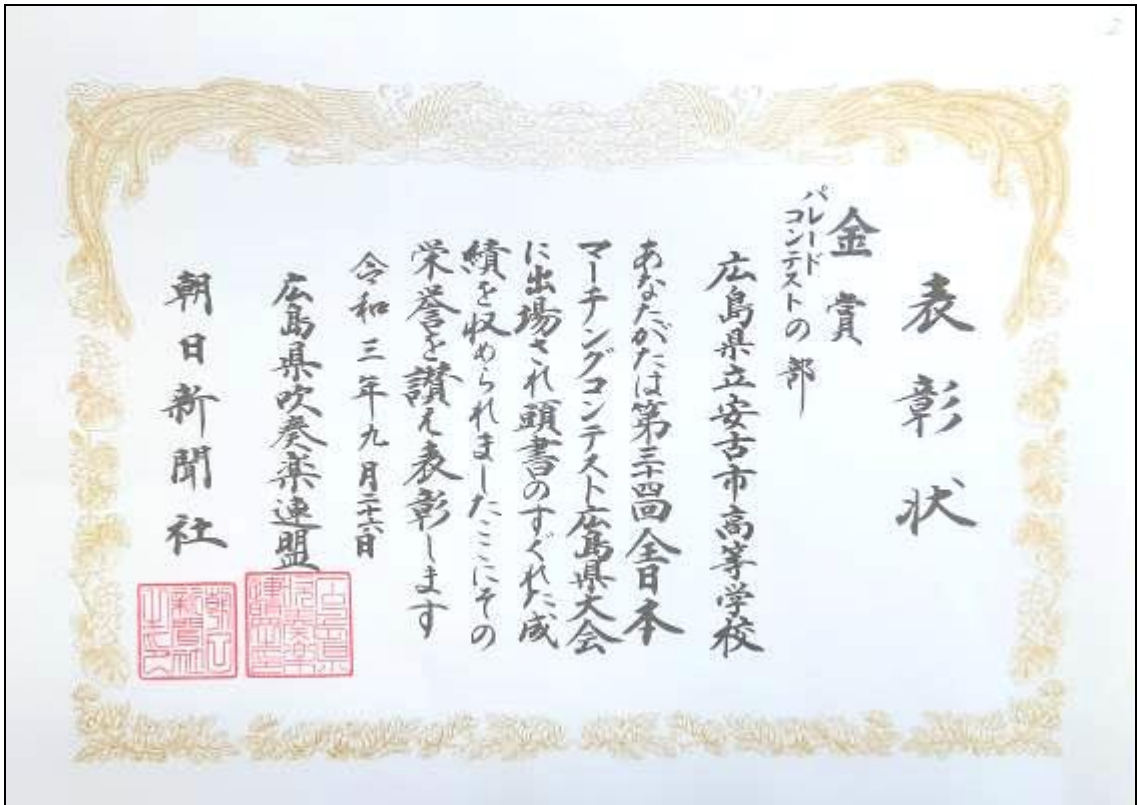 表彰状
金賞
パレード
コンテストの部
広島県立安古市高等学校
あなたがたは第三十四回全日本
マーチングコンテスト広島県大会
に出場され頭書のすぐれた成
績を収められましたここにその
栄誉を讃え表彰します
令和三年九月二十六日
広島県吹奏楽連盟
朝日新聞社